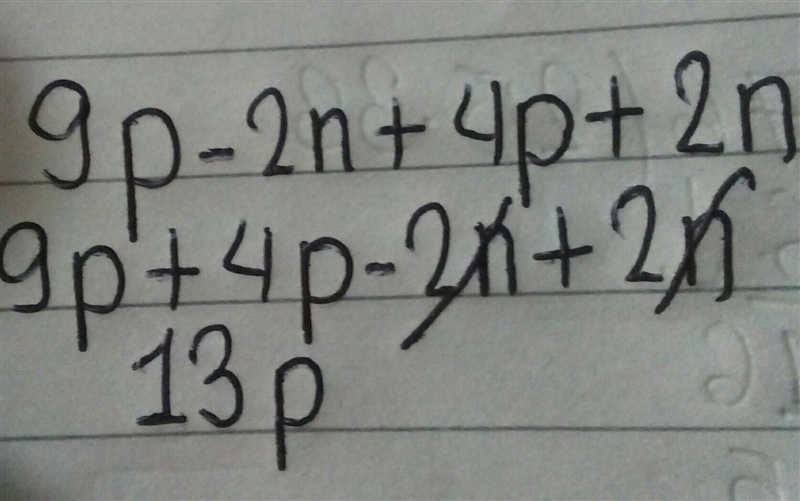 9p-2n+4p+2n
9p+4p-2n+2n
13p